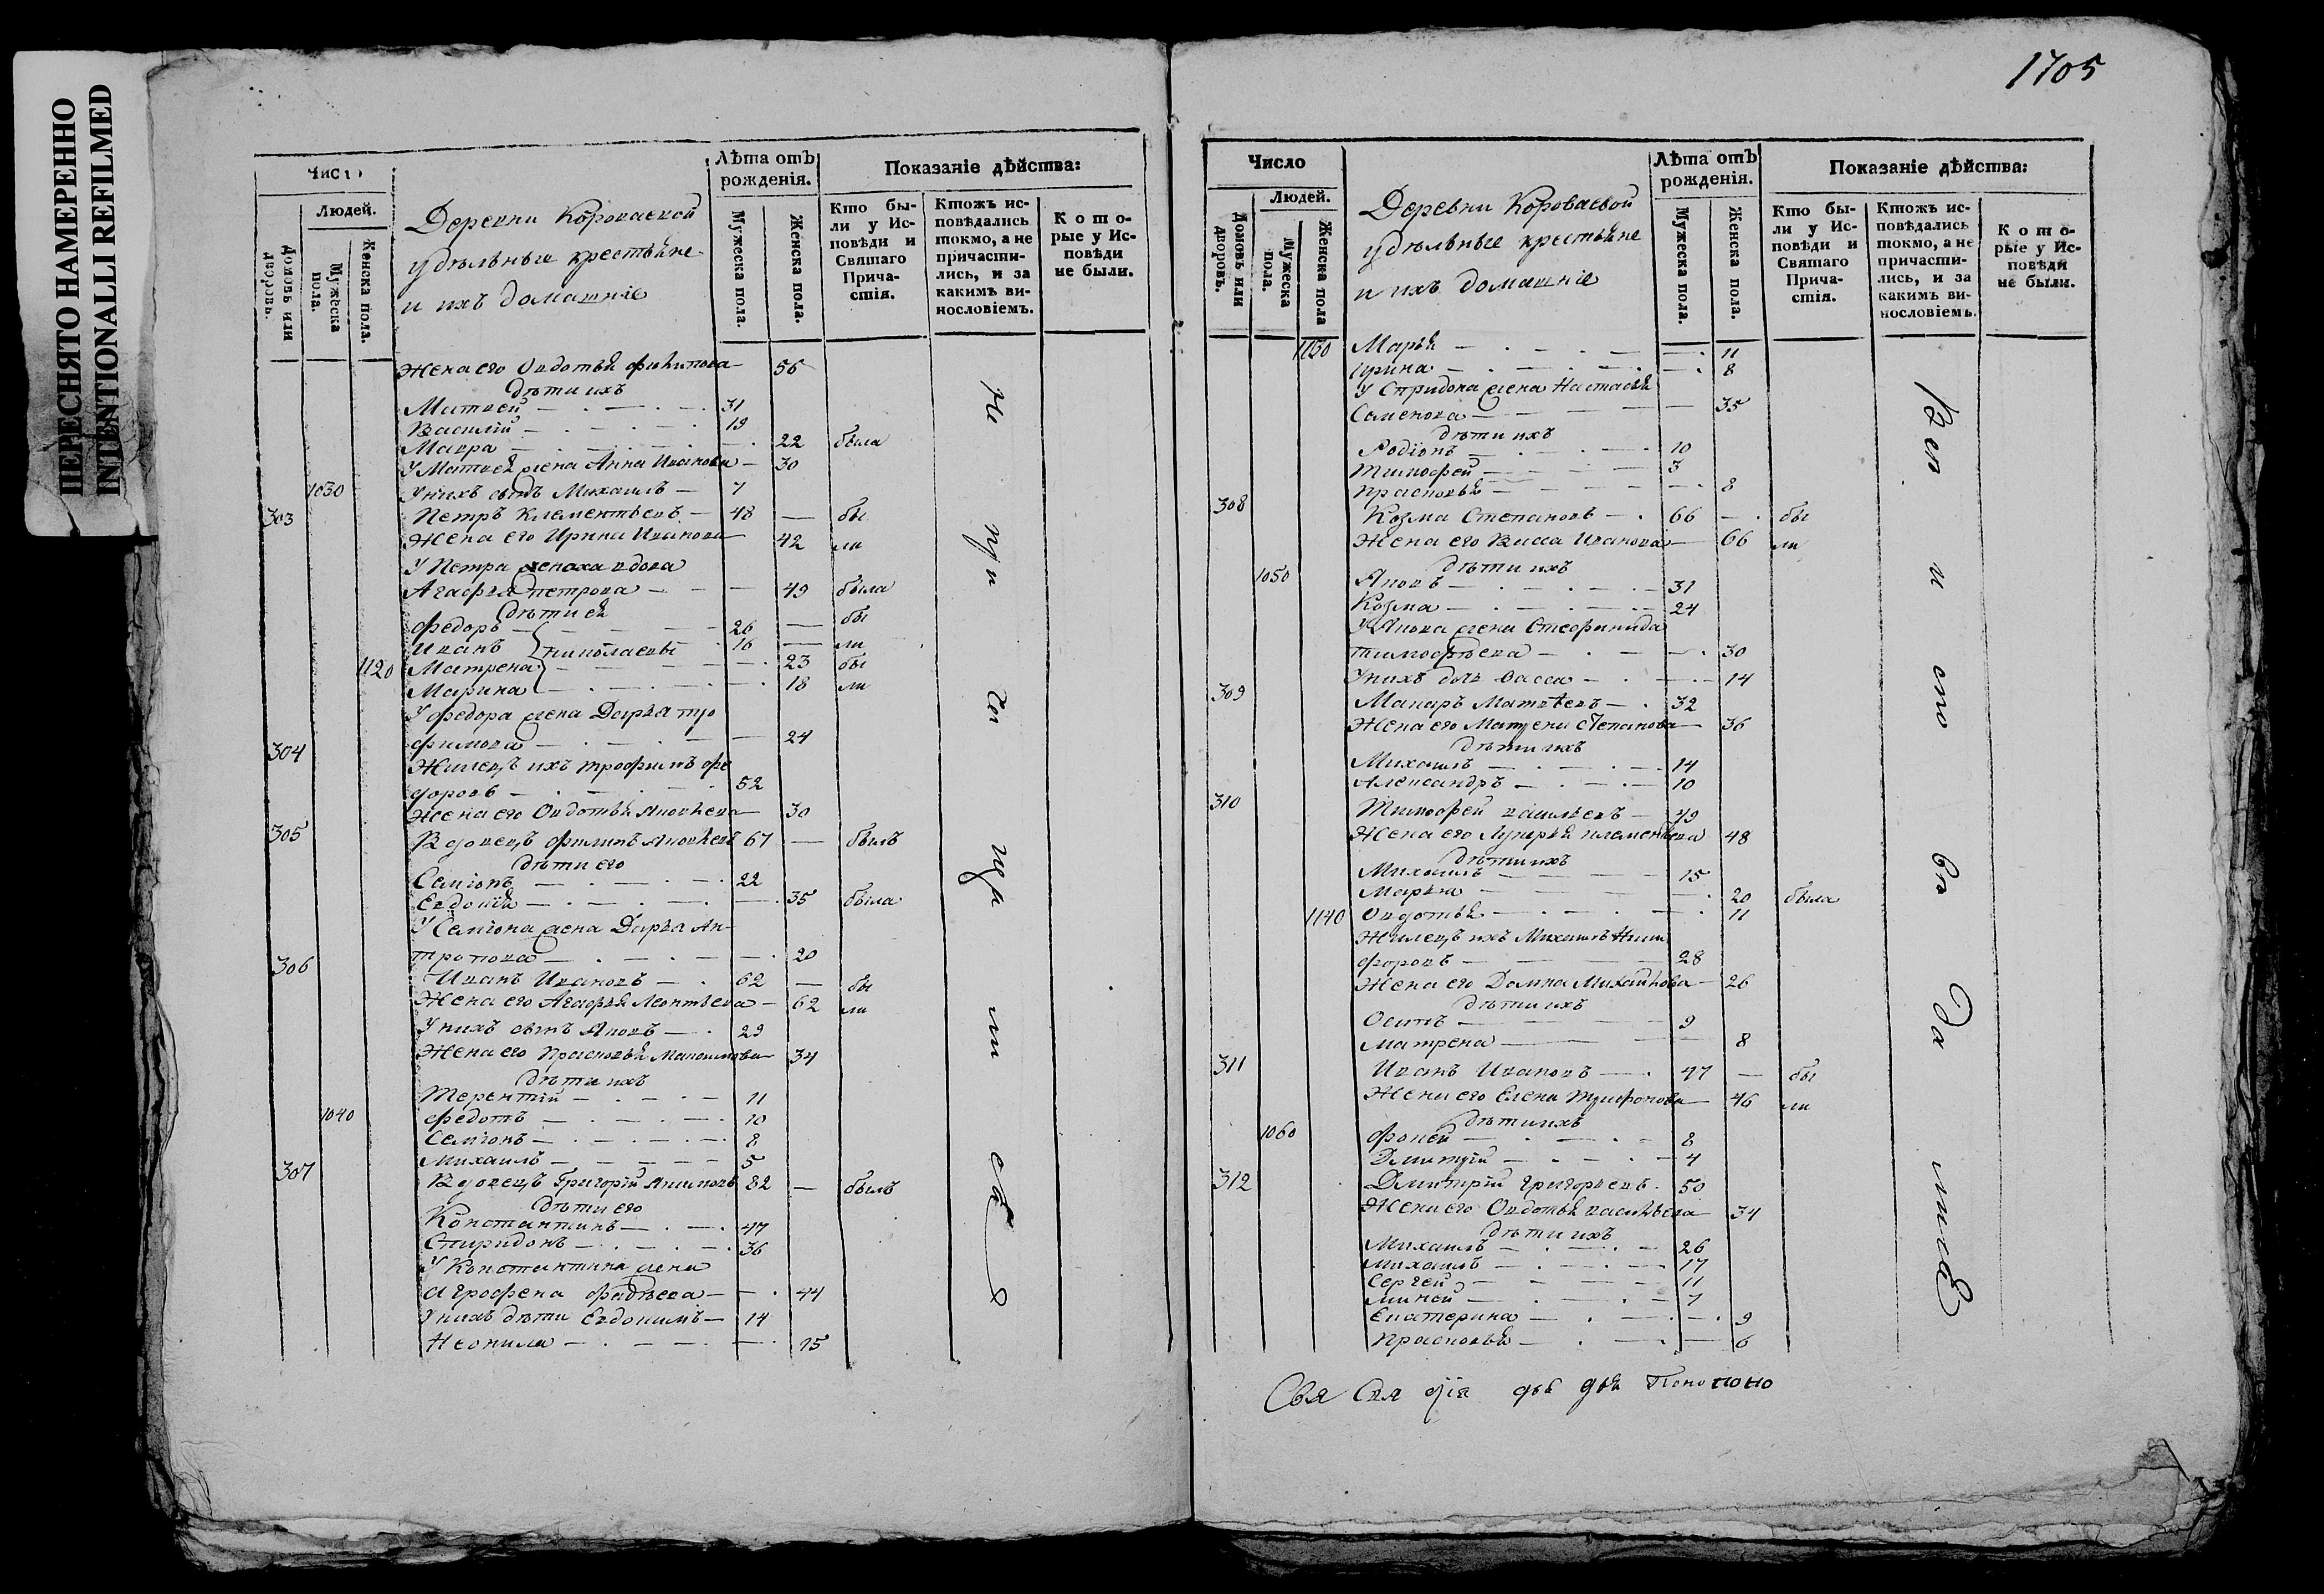 ПЕРЕСНЯТО НАМЕРЕННО
INTENTIONALLI REFILMED
Число
Людей.
Домовъ или дворовъ.
Мужеска пола.
Женска пола.
Деревни Короваевой
удѣльные крестьяне
и ихъ домашніе
Лѣта отъ рожденія.
Мужеска пола.
Женска пола.
Показаніе дѣйства:
Кто бы-
ли у Ис-
повѣди и
Святаго
Прича-
стія.
Ктожъ ис-
повѣдались
токмо, а не
причасти-
лись, и за
какимъ ви-
нословіемъ.
Кото-
рые у Ис-
повѣди
не были.
Жена его Овдотья Филипова 56
дѣти ихъ
Матвей 31
Василій 19
Мавра 22 была
У Матвея жена Анна Иванова 30
1030 У нихъ сынъ Михаилъ 7
303 Петръ Клементьевъ 48 бы
Жена его Ирина Иванова 42 ли
У Петра вдова
Агафья Петрова 49 была
дѣти ея
Федоръ 26 бы
Иванъ Николаевы 16 ли
1120 Матрена 23 бы
Марина 18 ли
У Федора жена Дарья Тро
фимова 24
304 Жилецъ ихъ Трофимъ Фе
доровъ 52
Жена его Овдотья Яковлева 30
305 Вдовецъ Филипъ Яковлевъ 67 былъ
дѣти его
Семіонъ 22
Евдокія 35 была
У Семіона жена Дарья Ан-
тропова 20
306 Иванъ Ивановъ 62 бы
Жена его Агафья Леонтьева 62 ли
У нихъ сынъ Яковъ 29
Жена его Прасковья Максимова 34
дѣти ихъ
Терентій 11
1040 Федотъ 10
Семіонъ 8
Михаилъ 5
307 Вдовецъ Григорій 82 былъ
дѣти его
Константинъ 47
Спиридонъ 36
У Константина жена
Агрофена Фадѣева 44
У нихъ дѣти Евдокимъ 14
Неонила 25
1705
Число
Людей.
Домовъ или дворовъ.
Мужеска пола.
Женска пола
Деревни Короваевой
удѣльные крестьяне
и ихъ домашніе
Лѣта отъ рожденія.
Мужеска пола.
Женска пола.
Показаніе дѣйства:
Кто бы-
ли у Ис-
повѣди и
Святаго
Прича-
стія.
Ктожъ ис-
повѣдались
токмо, а не
причасти-
лись, и за
какимъ ви-
нословіемъ.
Кото-
рые у Ис-
повѣди
не были.
1130 Марья 11
Ирина 8
У Спридона жена Настасья
Семенова 35
дѣти ихъ
Родіонъ 10
Тимофей 3
Прасковья 8
308 Козма Степановъ 66 бы
Жена его Васса Иванова 66 ли
дѣти ихъ
1050 Яковъ 31
Козма 24
У Якова жена Стефанида
Тимофѣева 30
У нихъ дочь Васса 14
309 Макаръ Матвѣевъ 32
Жена его Матрена Степанова 36
дѣти ихъ
Михаилъ 14
Александръ 10
310 Тимофей Василѣевъ 49
Жена его Лукерья Клементьева 48
дѣти ихъ
Михаилъ 15
Марья 20 была
1140 Овдотья 11
Жилецъ ихъ Михаилъ Ники
форовъ 28
Жена его Домна Михайлова 26
дѣти ихъ
Осипъ 9
Матрена 8
311 Иванъ Ивановъ 47 бы
Жена его Елена Трифонова 46 ли
дѣти ихъ
1060 Фокей 8
Дмитрій 4
312 Дмитрій Григорьевъ 50
Жена его Овдотья Василѣева 34
дѣти ихъ
Михаилъ 26
Михаилъ 17
Сергей 11
Миней 7
Екатерина 9
Прасковья 6